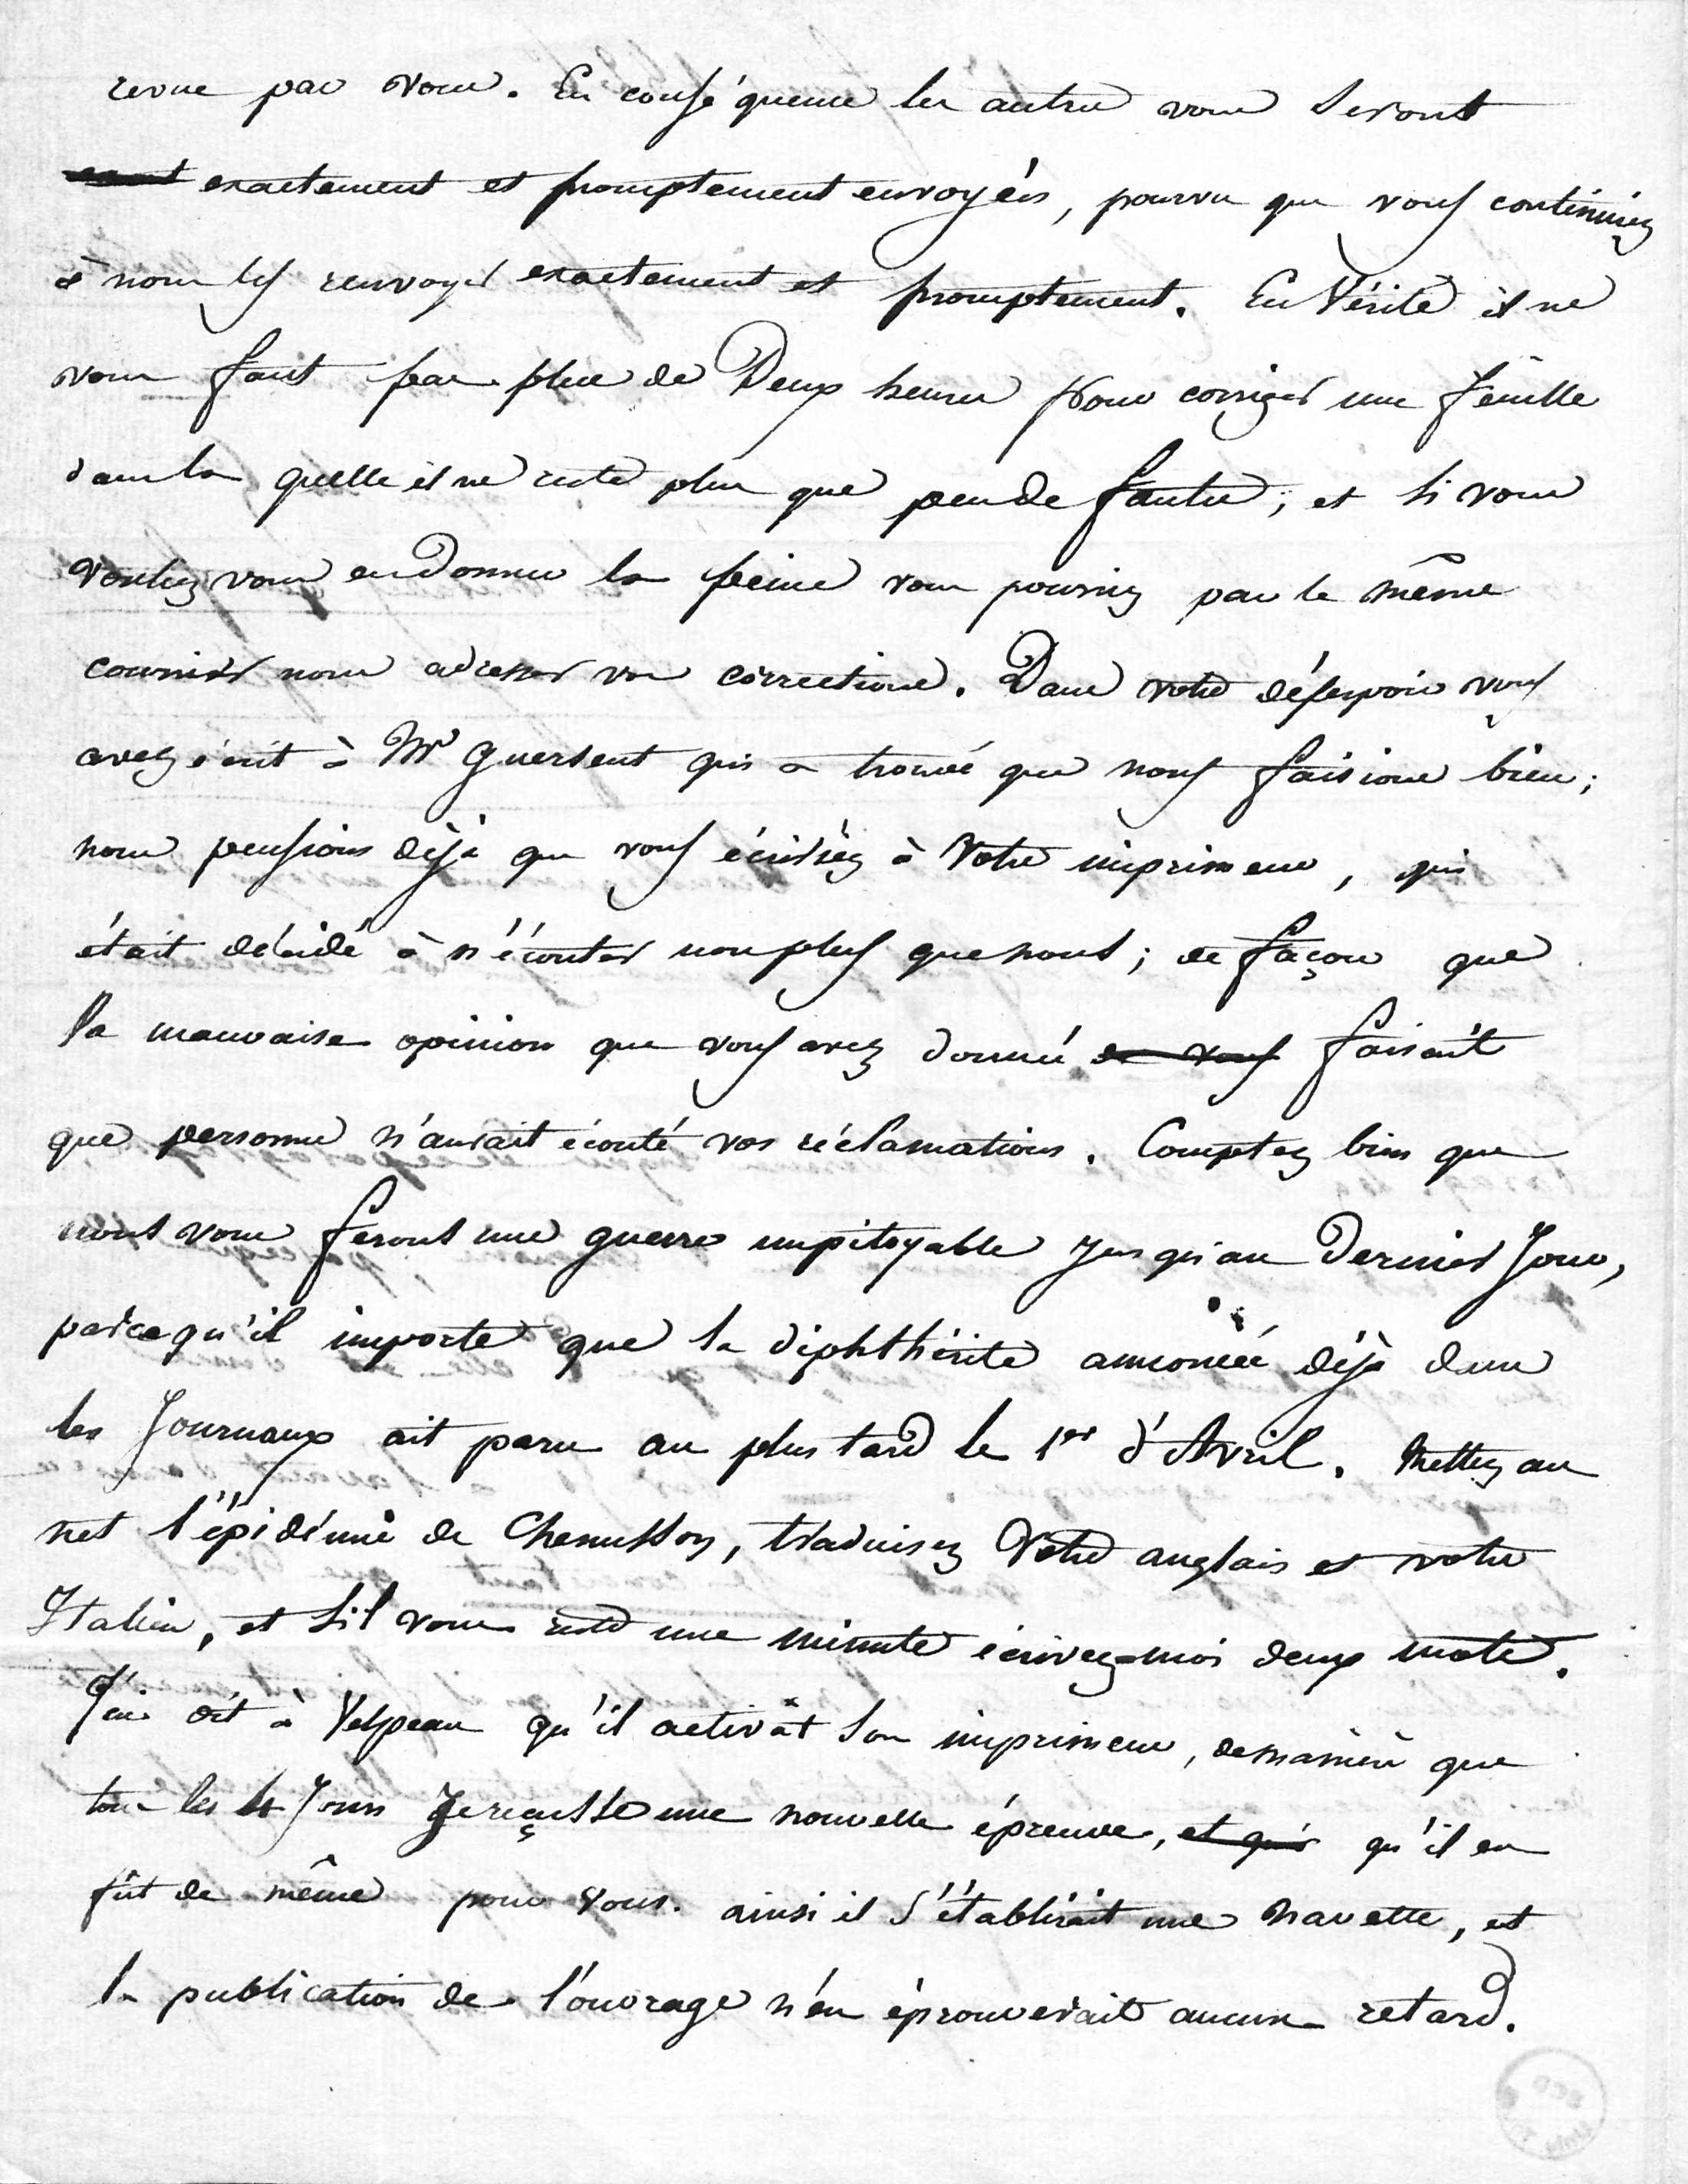 revue par vous. En conséquence les autres vous seront
exactement et promptement envoyées, pourvu que vous continuiez
à nous les renvoyer exactement et promptement. En Vérité il ne
vous faut pas plus de Deux heures pour corriger une feuille
dans la quelle il ne reste plus que peu de fautes; et si vous
vouliez vous en donner la peine vous pourriez par le même
courrier nous adresser vos corrections. Dans votre désespoir vous
avez écrit à Mr Guersent qui a trouvé que nous faisions bien;
nous pensions déjà que vous écririez à Votre imprimeur, qui
était décidé à n'écouter non plus que nous; de façon que
la mauvaise opinion que vous avez donnée de vous faisait
que personne n'aurait écouté vos réclamations. Comptez bien que
nous vous ferons une guerre impitoyable Jusqu'au Dernier Jour,
parcequ'il importe que la diphthérite annoncée déjà dans
les Journaux ait paru au plus tard le 1er d'Avril. Mettez au
net l'épidémie de Chenusson, traduisez Votre anglais et votre
Italien, et s'il vous reste une minute écrivez-moi deux mots.
J'ai dit à Velpeau qu'il activât son imprimeur, demanière que
tous les 4 Jours Je reçusse une nouvelle épreuve, et qu'i qu'il en
fût de même pour vous. ainsi il s'établirait une navette, et
la publication de l'ouvrage n'en éprouverait aucun retard.